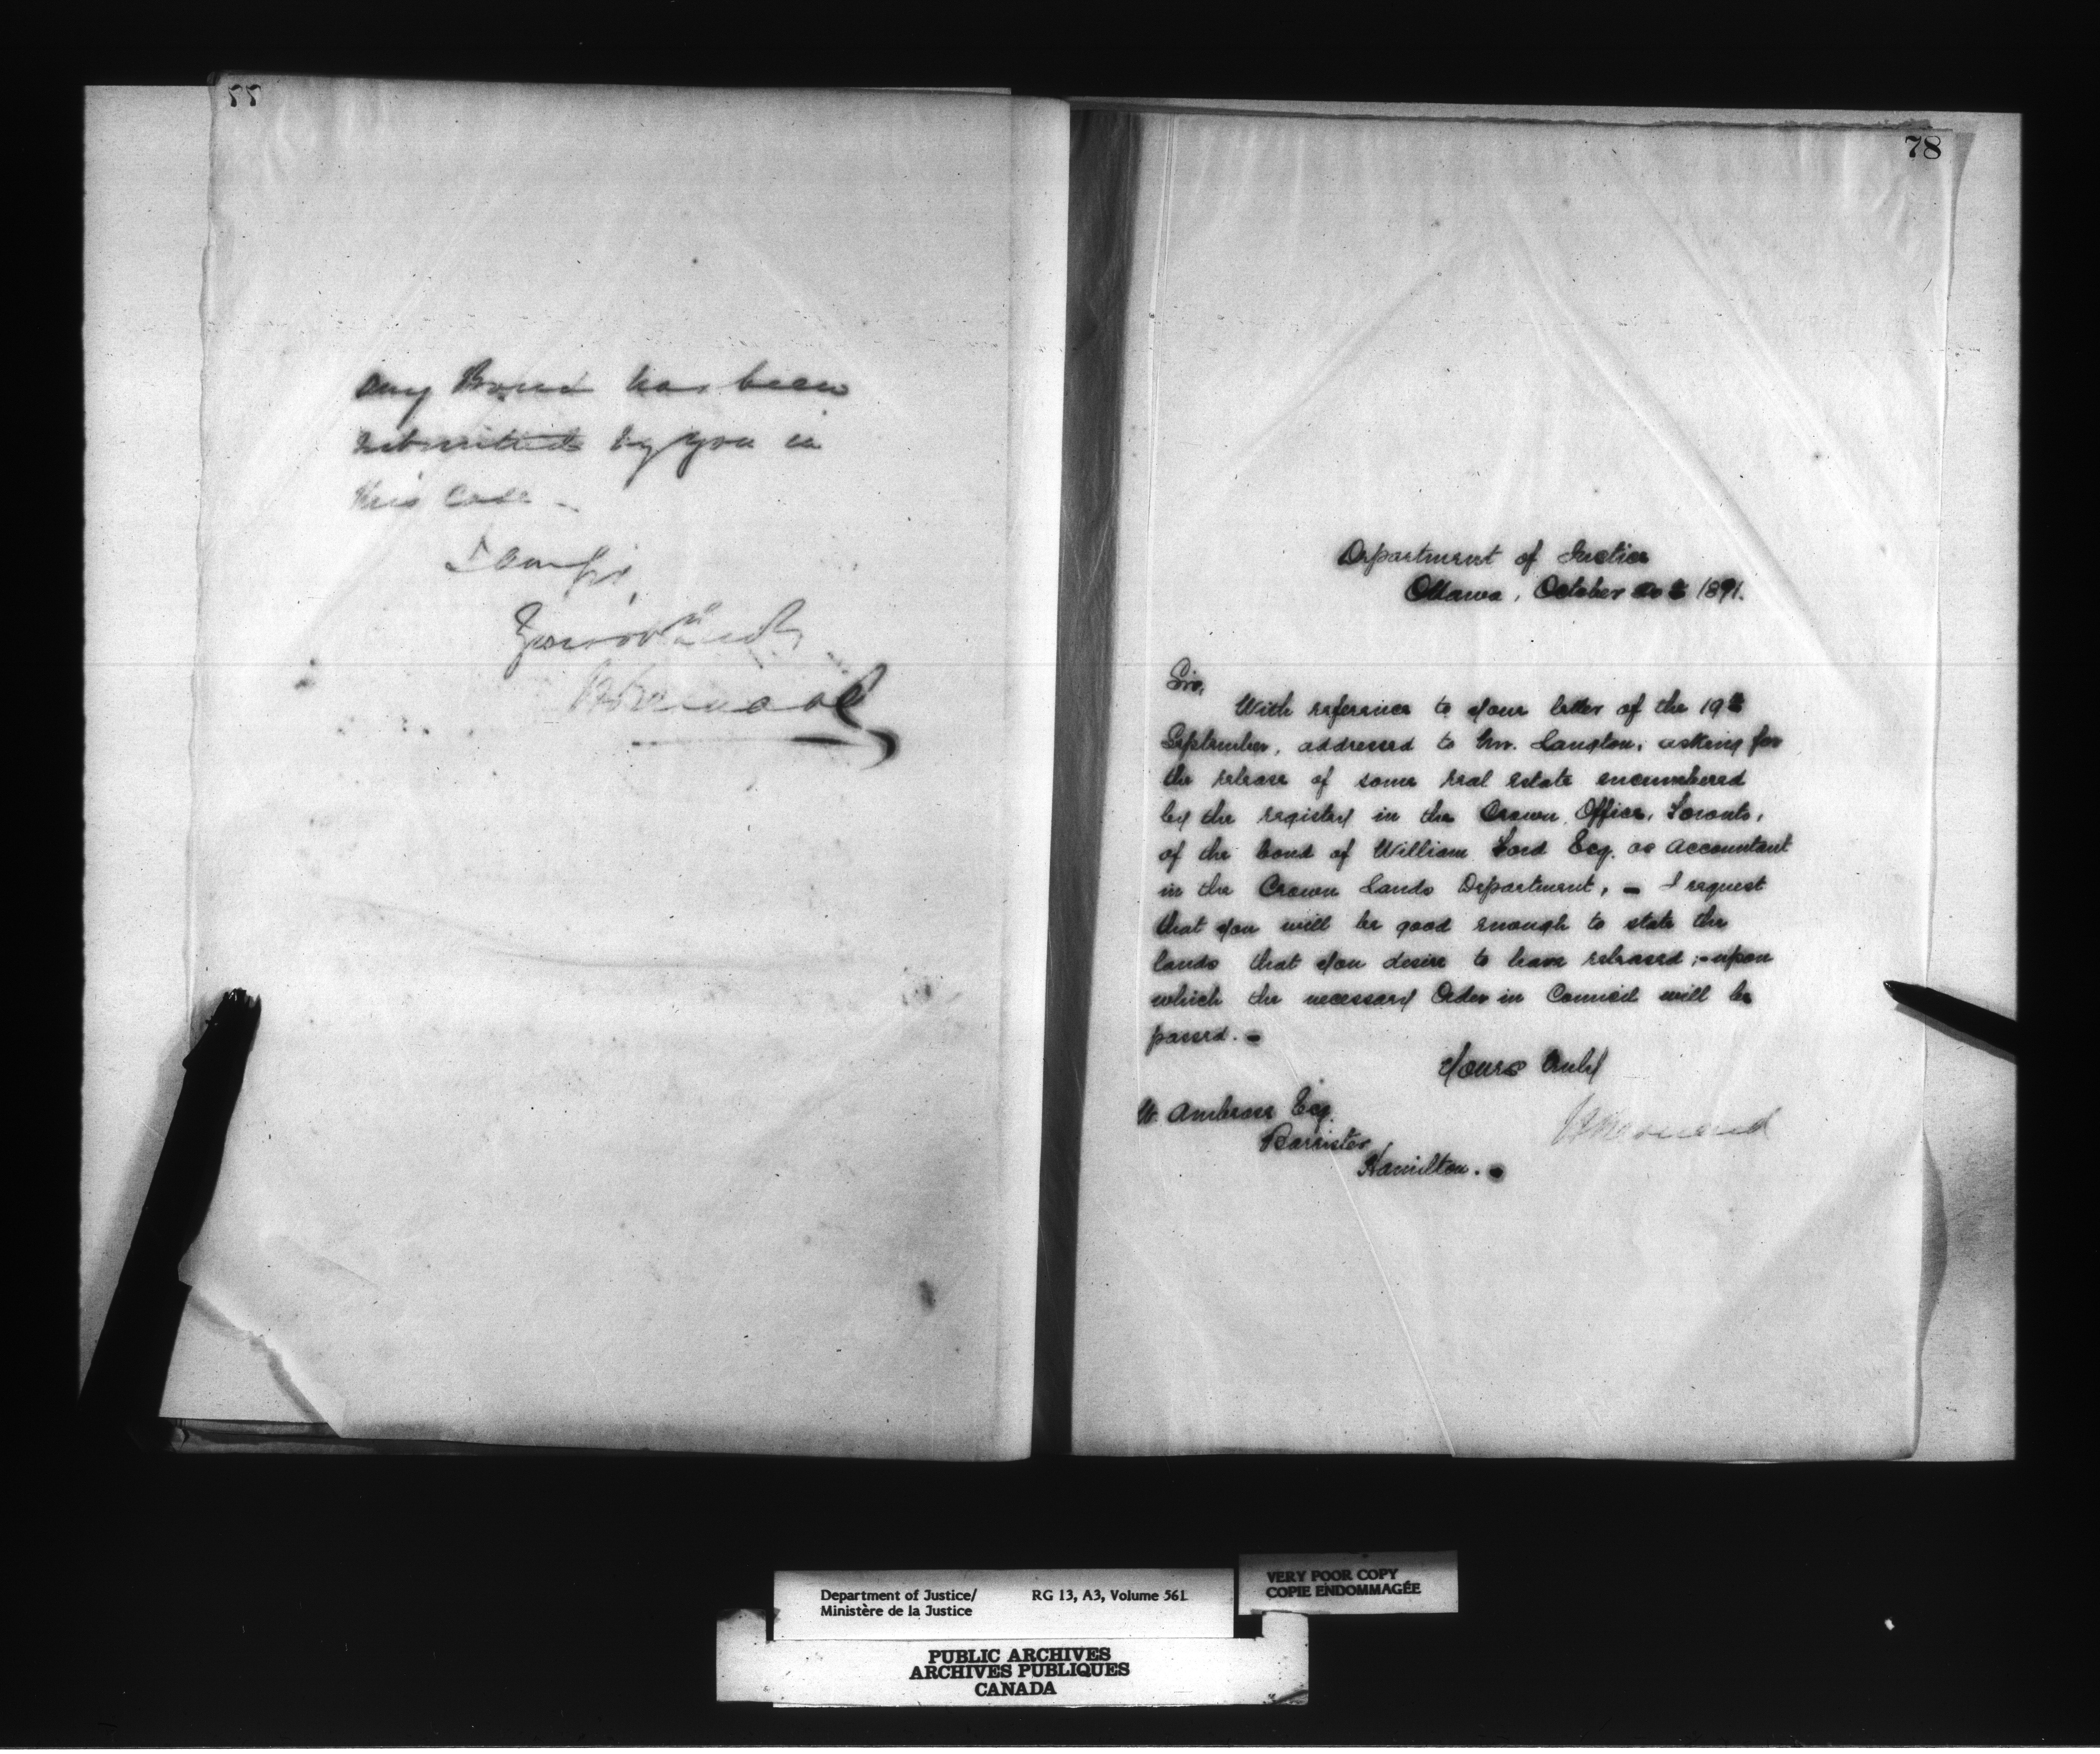 77
any Bond has been
submitted by you in
this case _
I am Sir,
78
Department of Justice
Ottawa, October 1891.
Sir,
With reference to your letter of the 19th
September, addressed to Mr. Langton, asking for
the release of some real estate encumbered
by the registry in the Crown Office, Toronto,
of the bond of William Ford Esq. as accountant
in the Crown Lands Department, - I request
that you will be good enough to state the
lands that you desire to have released; - upon
which the necessary Order in Council will be
passed. -
Yours truly
W. Ambrose Esq.
Barrister,
Hamilton. -
Department of Justice/
Ministère de la Justice
RG 13, A3, Volume 561
VERY POOR COPY
COPIE ENDOMMAGÉE
PUBLIC ARCHIVES
ARCHIVES PUBLIQUES
CANADA